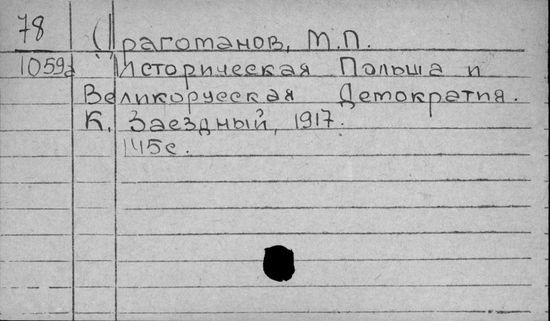 78 Драгоманов, М.П.
1059д Историческая Польша и
Великорусская Демократия.
К. Заездный, 1917.
145с.